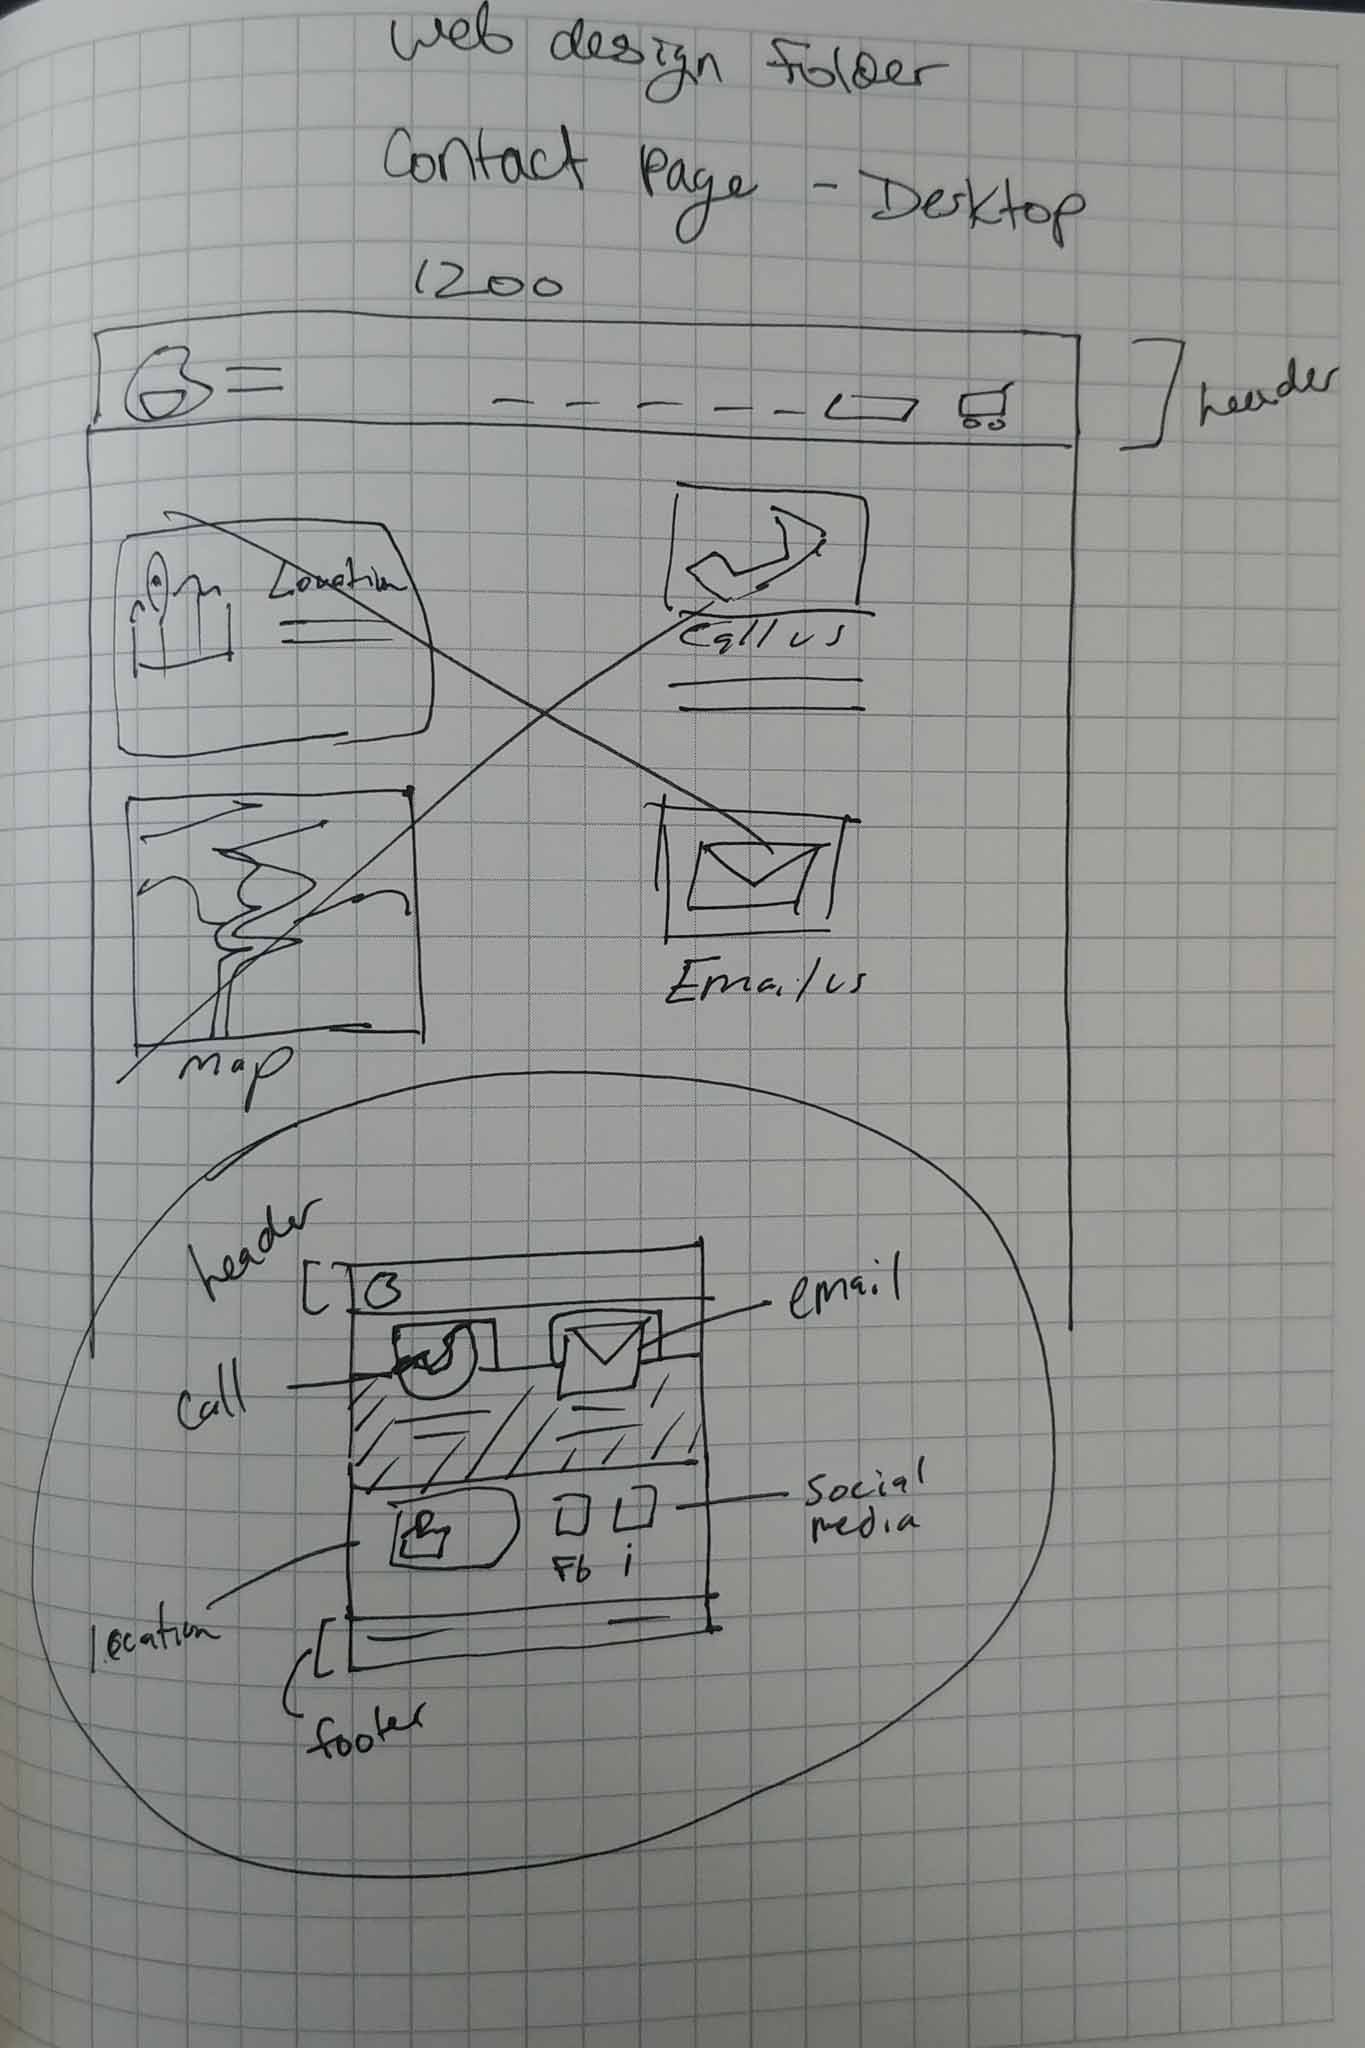 web design Folder
Contact Page - Desktop
1200
header
Location
Call us
Email us
map
header
email
call
social
media
Fb i
location
footer